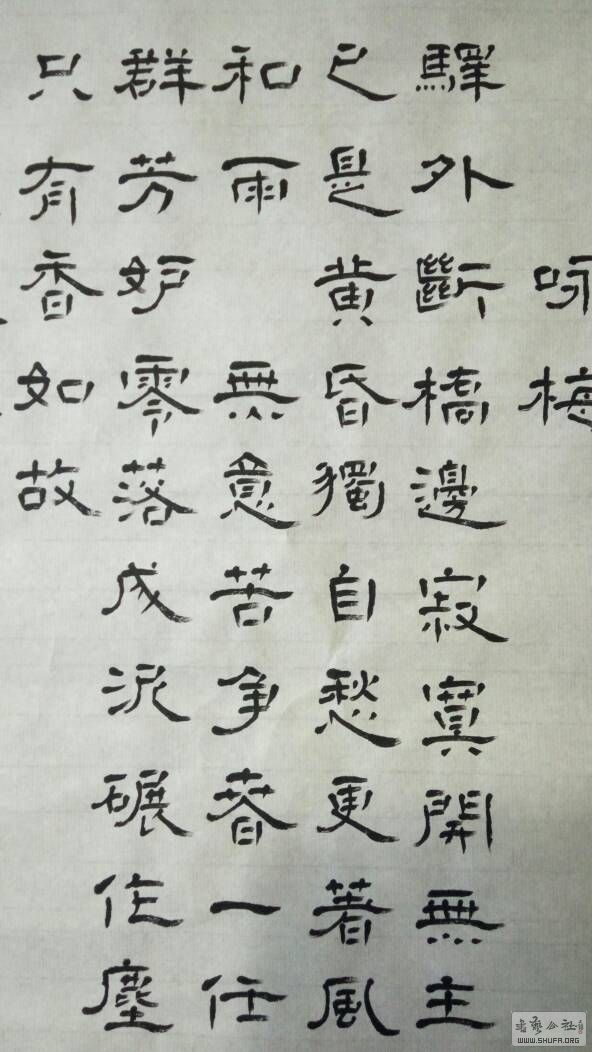 咏梅
驛外斷橋邊寂寞開無主
已是黄昏獨自愁更著風
和雨 無意苦争春一任
群芳妒零落成泥碾作塵
只有香如故
書藝公社
WWW.SHUFA.ORG